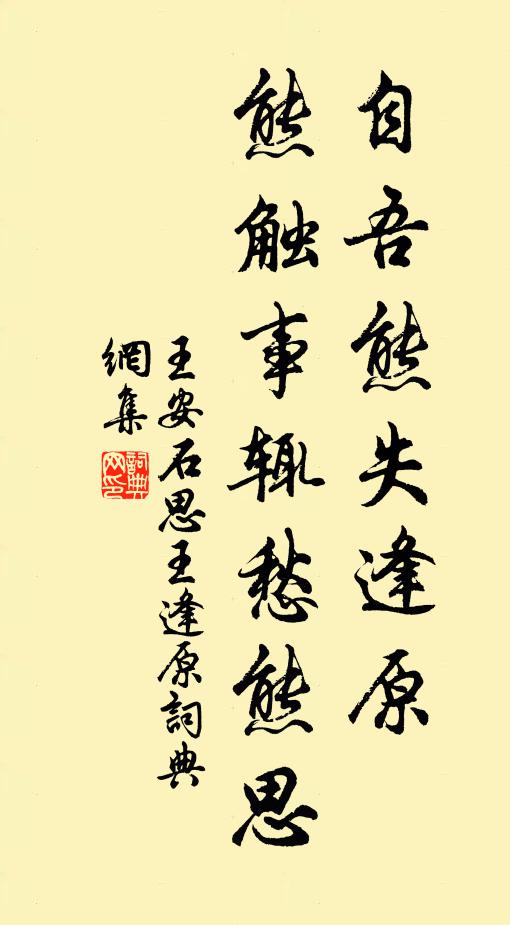 自吾熊失逢原
熊触事辄愁熊思
王安石思王逢原詞典
網集
詞典
网印